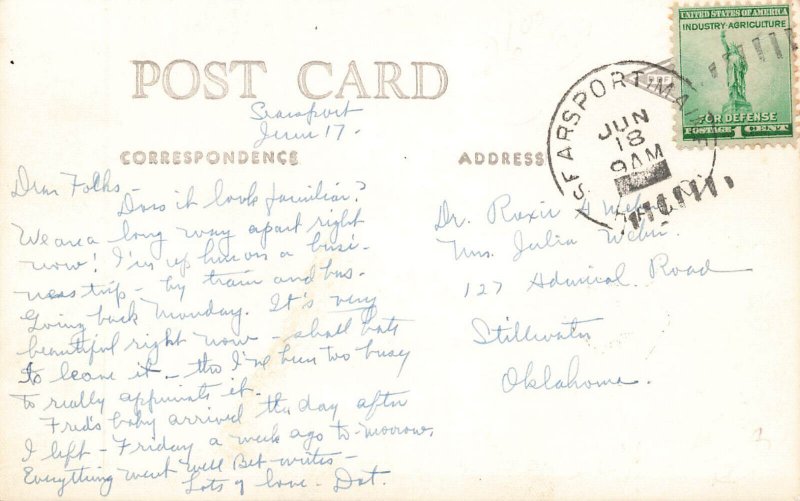 POST CARD
UNITED STATES OF AMERICA
INDUSTRY-AGRICULTURE
FOR DEFENSE
POSTAGE 1 CENT
SEARSPORT MAINE
JUN
18
9AM
Searsport
June 17.
CORRESPONDENCE
ADDRESS
Dear Folks -
Does it look familiar?
We are a long way apart right
now! I'm up here on a busi-
ness trip - by train and bus.
Going back Monday. It's very
beautiful right now - shall hate
to leave it - tho I've been too busy
to really appreciate it.
Fred's baby arrived the day after
I left - Friday a week ago to-morrow.
Everything went well Bet writes -
Lots of love - Dot.
Dr.
Mrs. Julia Weber
127 Admiral Road
Stillwater
Oklahoma.